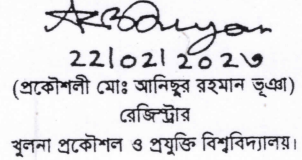 22/02/2023
(প্রকৌশলী মোঃ আনিছুর রহমান ভূঞা)
রেজিস্ট্রার
খুলনা প্রকৌশল ও প্রযুক্তি বিশ্ববিদ্যালয়।